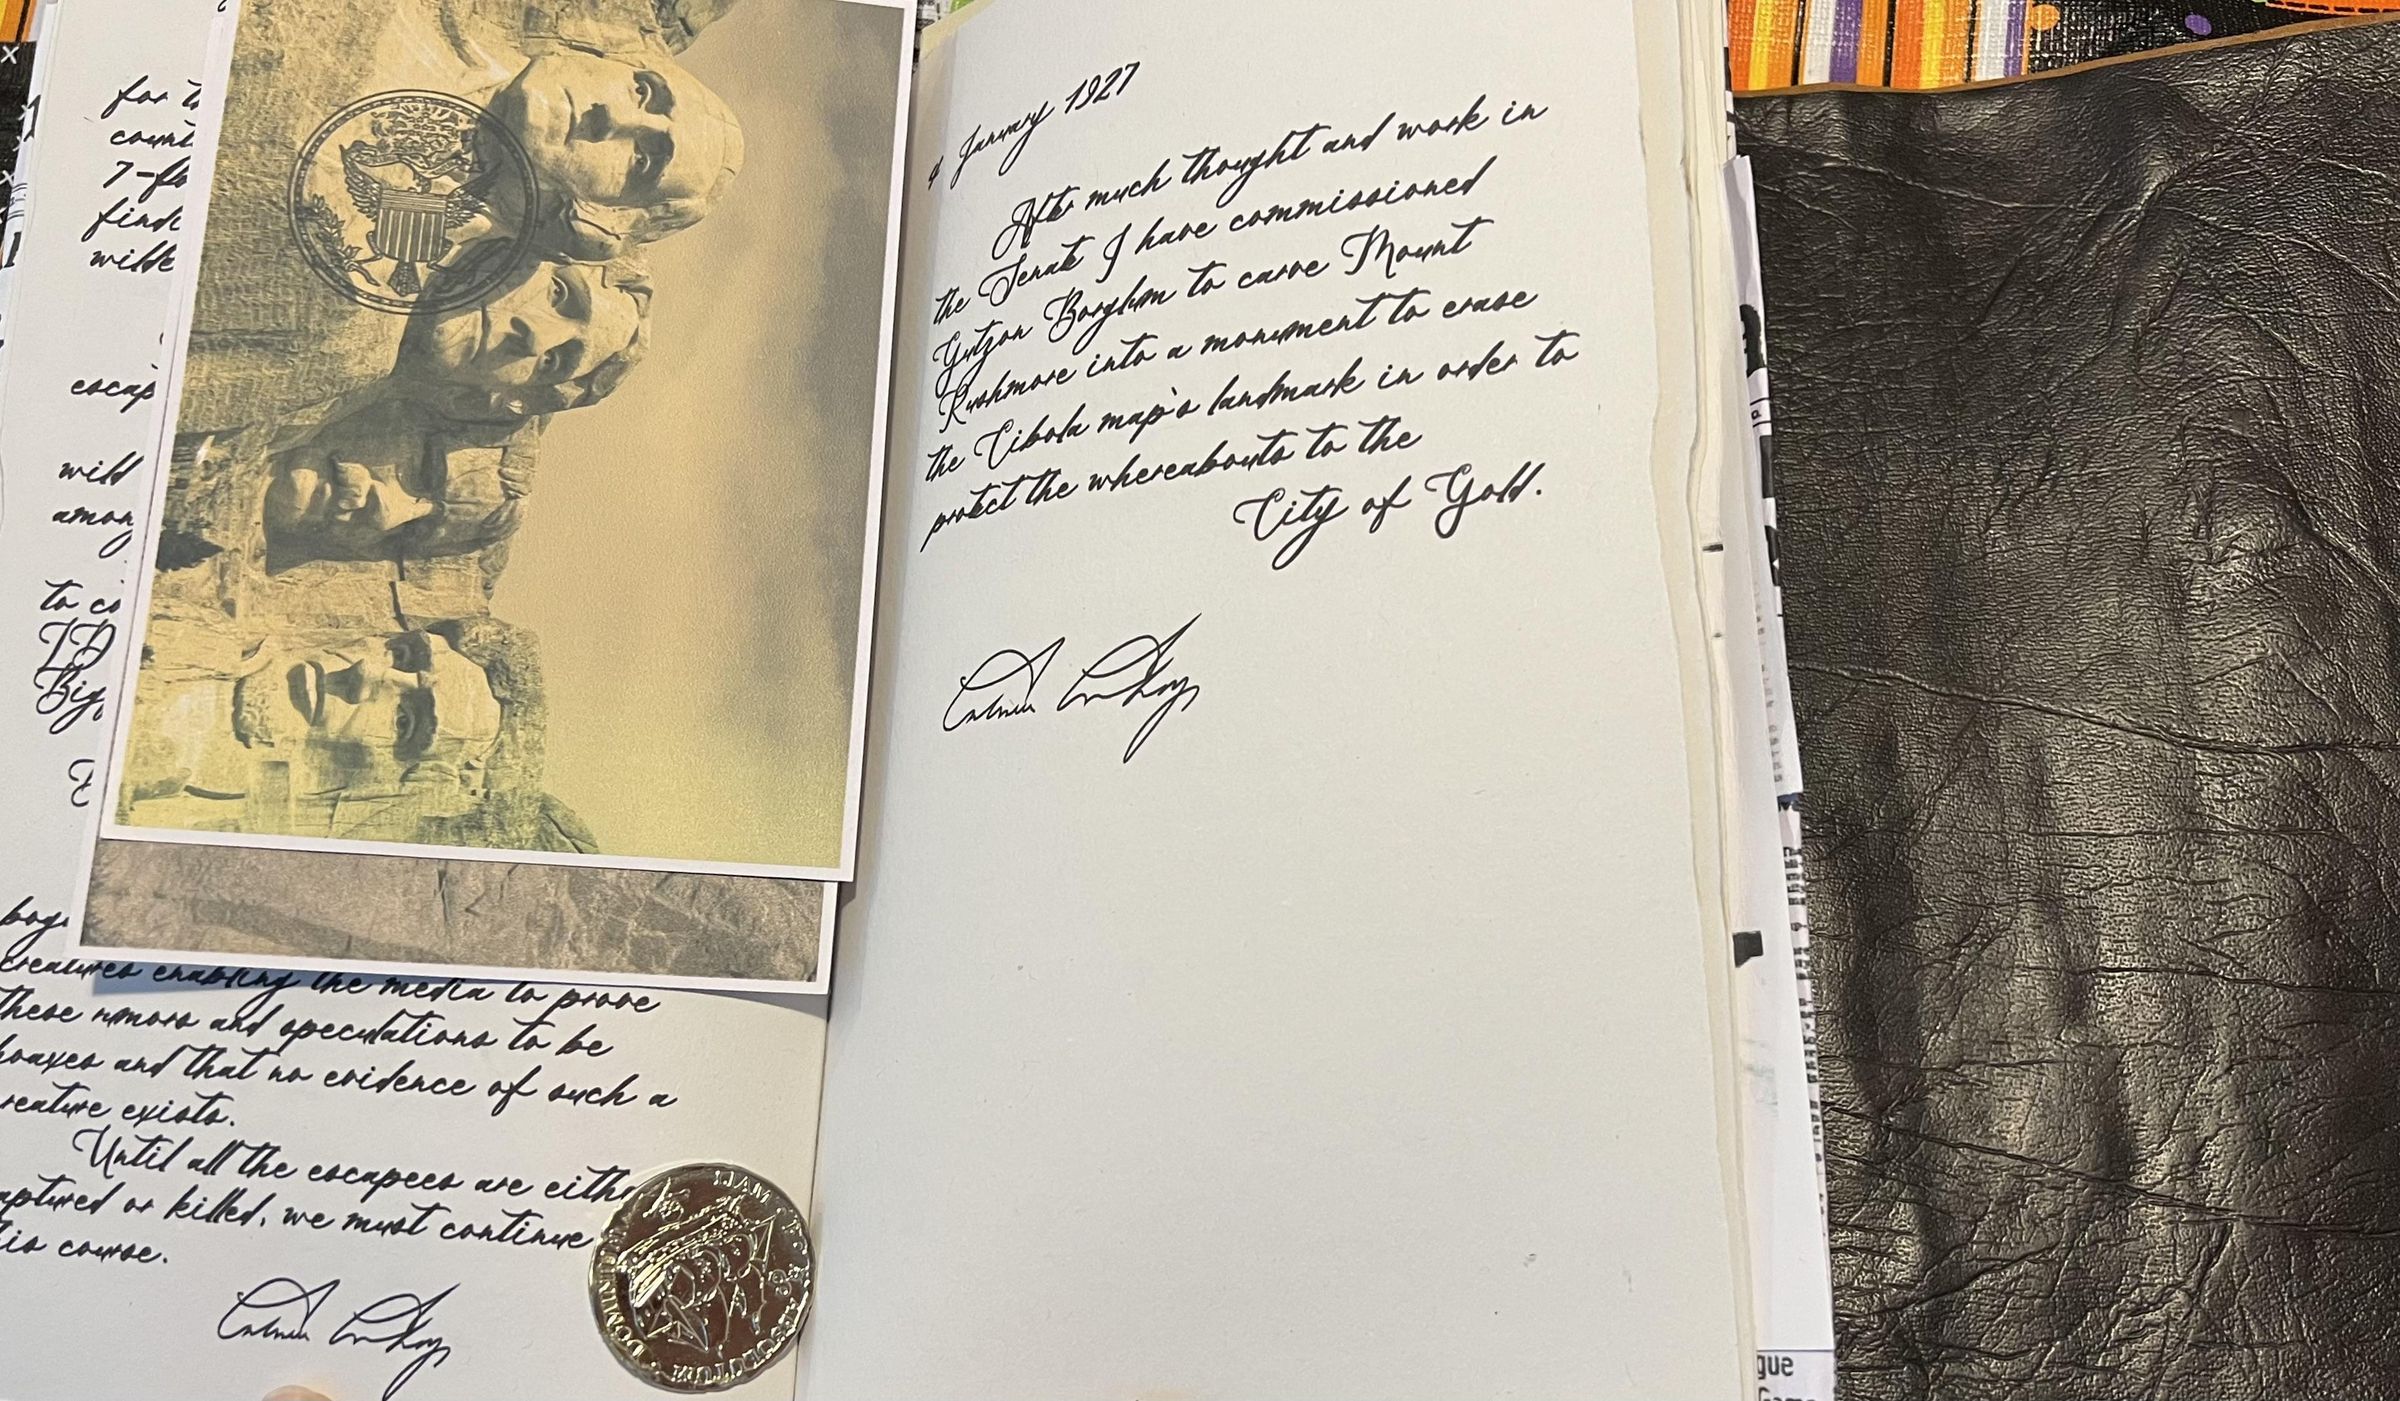 for
7-
escap
will
among
to co
creatures enabling the media to prove
these rumors and speculations to be
hoaxes and that no evidence of such a
reature exists.
Until all the escapees are eithe
aptured or killed, we must continue
is course.
January 1927
After much thought and work in
the Senate I have commissioned
Gutzon Borglum to carve Mount
Rushmore into a monument to erase
the Cibola map's landmark in order to
protect the whereabouts to the
City of Gold.
gue